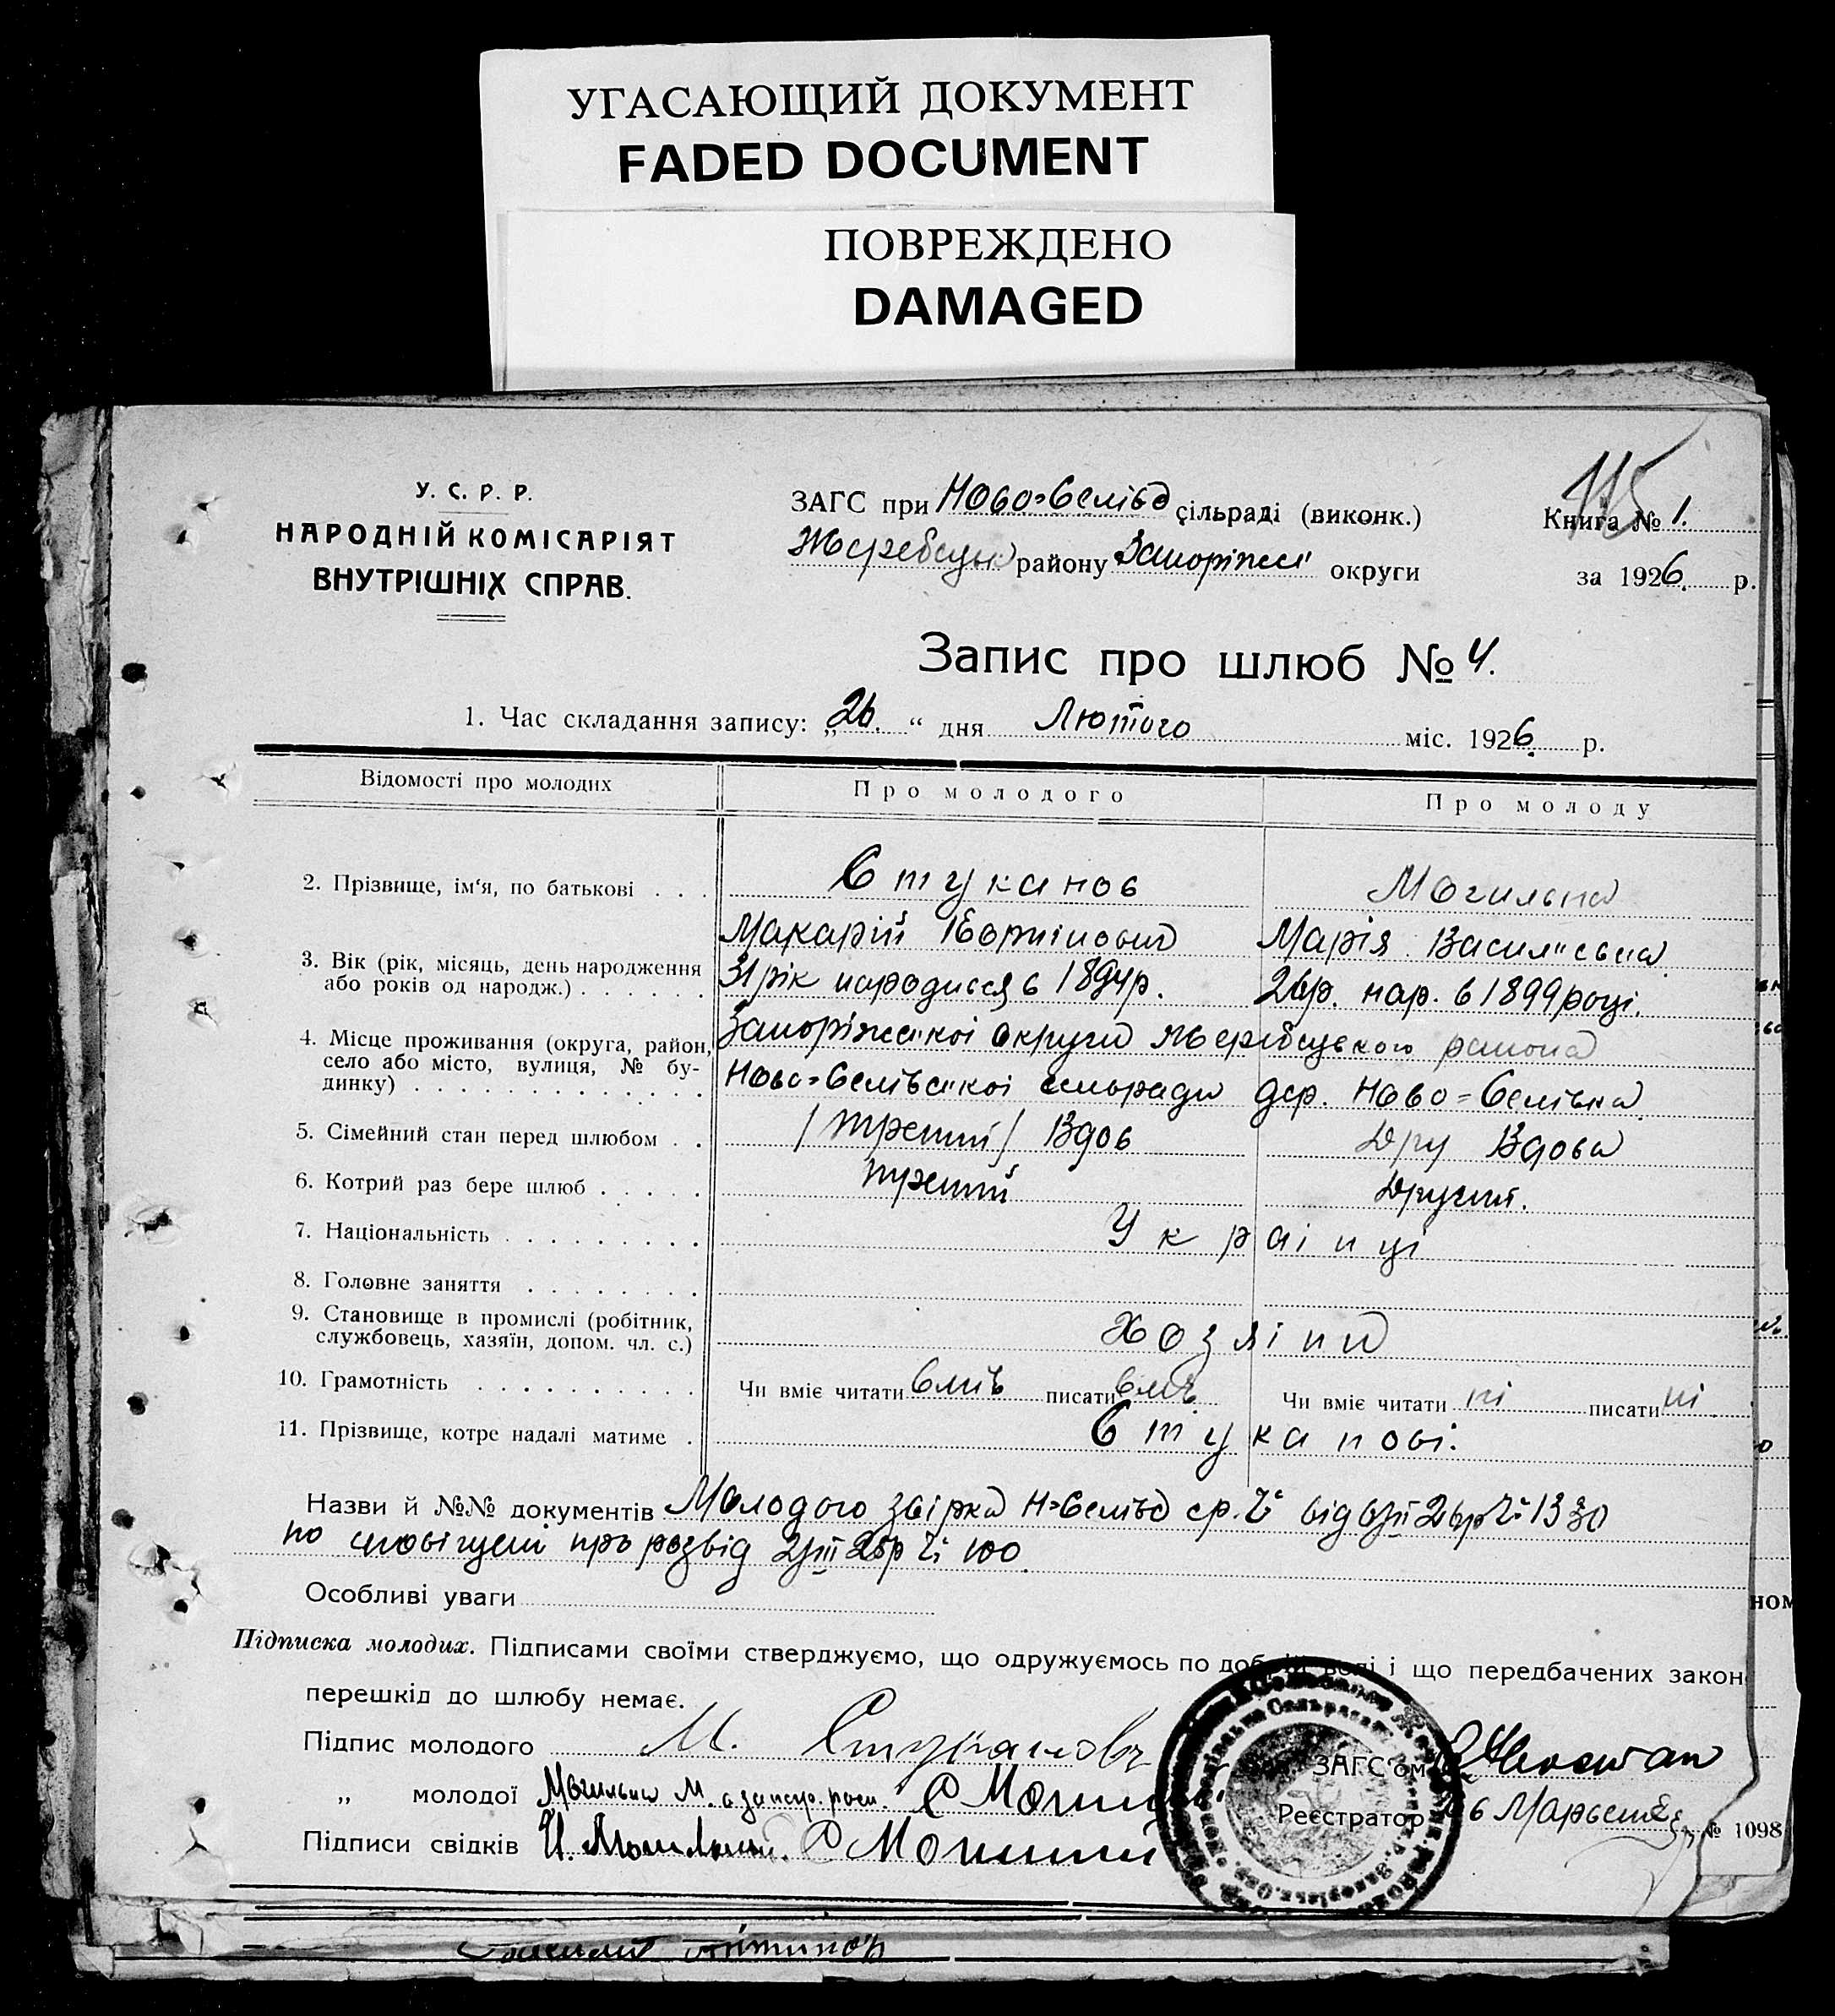 УГАСАЮЩИЙ ДОКУМЕНТ
FADED DOCUMENT
ПОВРЕЖДЕНО
DAMAGED
115
У. С. Р. Р.
НАРОДНІЙ КОМІСАРІЯТ
ВНУТРІШНІХ СПРАВ.
ЗАГС при Ново=Селівс сільраді (виконк.)
Жеребецьк району Запоріжсь округи
Книга № 1.
за 1926. р.
Запис про шлюб № 4.
1. Час складання запису: „26.“ дня Лютого міс. 1926. р.
Відомості про молодих
Про молодого
Про молоду
2. Прізвище, ім‘я, по батькові . . .
Стуканов
Могильна
Макарій
Марія Васил"євна
3. Вік (рік, місяць, день народження
або років од народж.) . . . . . .
31 рік народився в 1894р.
26р. нар. в 1899 році.
4. Місце проживання (округа, район,
село або місто, вулиця, № бу-
динку) . . . . . . . . . . . . .
Запоріжс"кої округи Жеребецького района
Ново=Селівс"кої сільради дер. Ново=Селівка
5. Сімейний стан перед шлюбом . .
/третій/ Вдов
Дру Вдова
6. Котрий раз бере шлюб . . . . .
третій
Другий.
7. Національність . . . . . . . . .
Українці
8. Головне заняття . . . . . . . .
9. Становище в промислі (робітник,
службовець, хазяїн, допом. чл. с.)
Хозяїни
10. Грамотність . . . . . . . . . .
Чи вміє читати вміє писати вміє
Чи вміє читати ні писати ні.
11. Прізвище, котре надалі матиме .
Стуканові.
Назви й №№ документів Молодого
по про розвід 100
Особливі уваги
Підписка молодих. Підписами своїми стверджуємо, що одружуємось по добрій волі і що передбачених закон
перешкід до шлюбу немає.
Підпис молодого М. Стукановъ
„ молодої Могильна М.
Зав. ЗАГС‘ом
Реєстратор
Підписи свідків
№ 1098